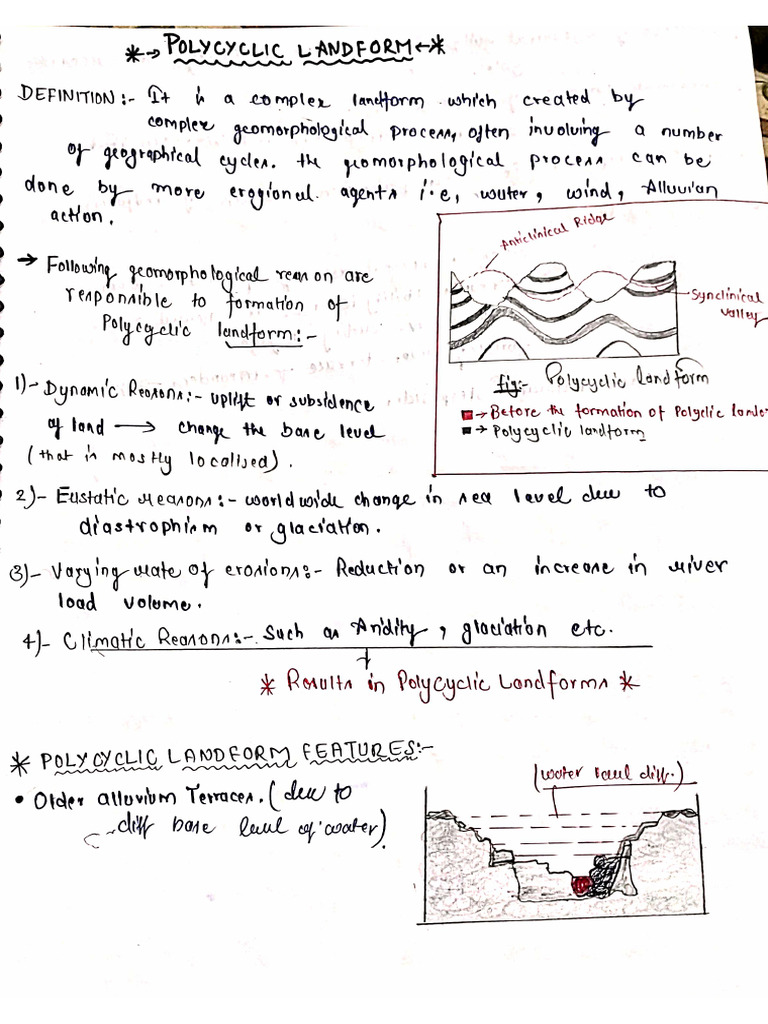 *→ POLYCYCLIC LANDFORM ←*
DEFINITION:- It is a complex landform which created by
complex geomorphological process, often involving a number
of geographical cycles. the geomorphological process can be
done by more erogional agents i.e, water, wind, Alluvian
action.
→ Following geomorphological reason are
responsible to formation of
Polycyclic landform:-
Anticlinical Ridge
Synclinical
Valley
fig:- Polycyclic landform
→ Before the formation of Polyclic lando
→ Polycyclic landform
1)- Dynamic Reasons:- uplift or subsidence
of land → change the base level
(that is mostly localised).
2)- Eustatic reasons:- worldwide change in sea level due to
diastrophism or glaciation.
3)- Varying rate of erosions:- Reduction or an increase in river
load volume.
4)- Climatic Reasons:- Such as Aridity, glaciation etc.
* Results in PolyCyclic Landforms *
* POLYCYCLIC LANDFORM FEATURES:-
• Older alluvium Terraces. (due to
diff base level of water).
(water level diff.)